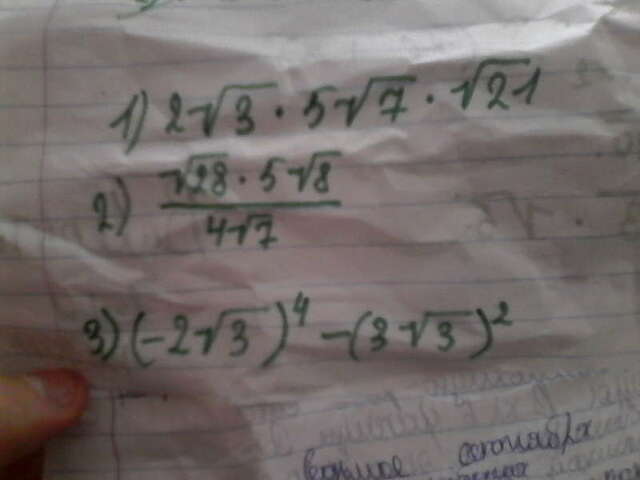 1) 2√3 · 5√7 · √21
2) (√28 · 5√8) / (4√7)
3) (-2√3)⁴ - (3√3)²